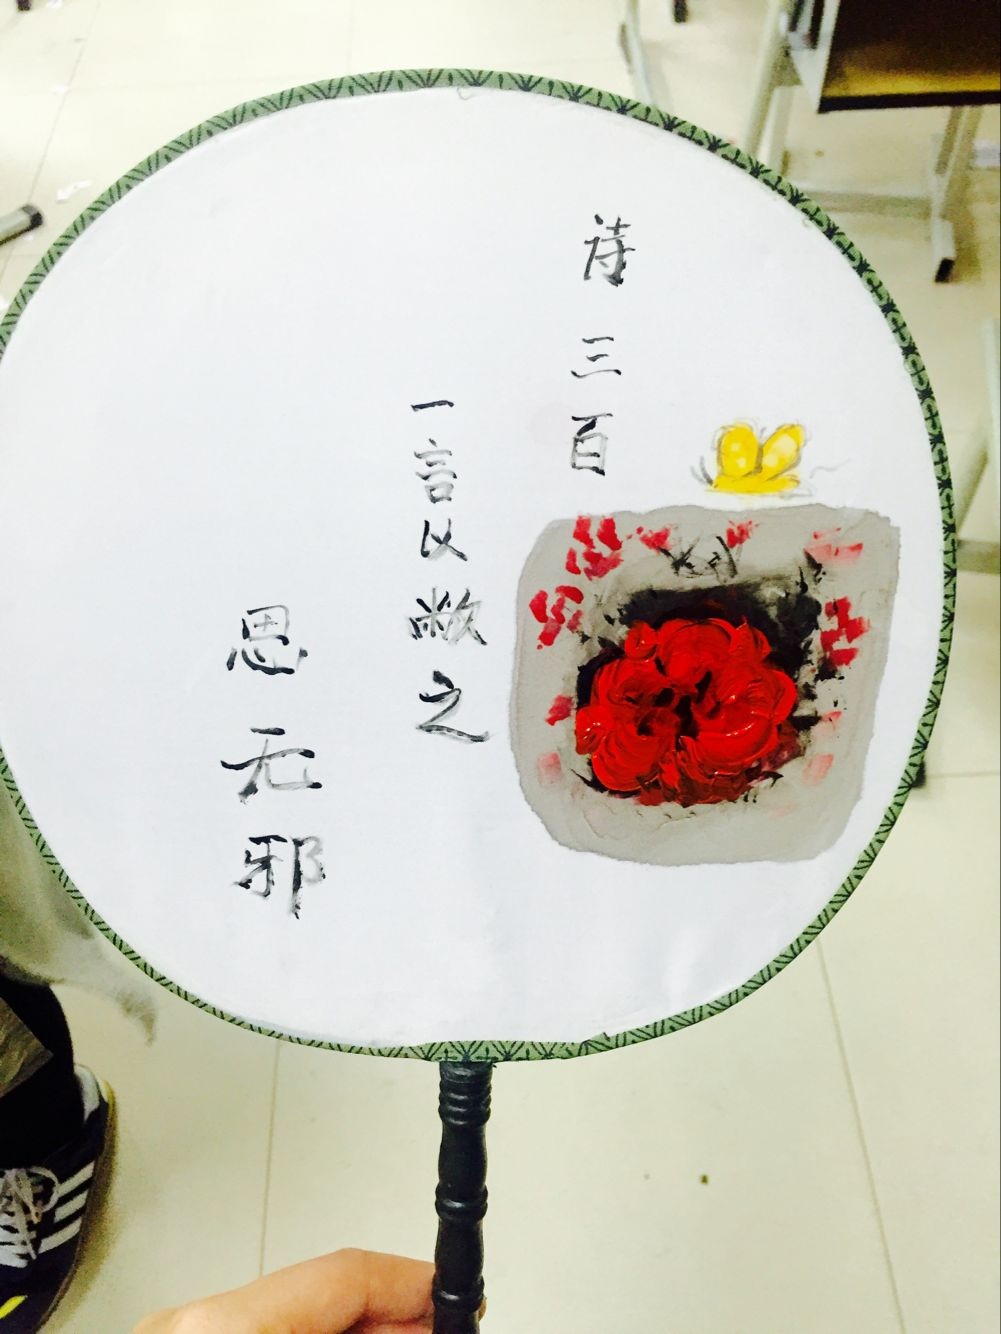 诗三百
一言以敝之
思无邪